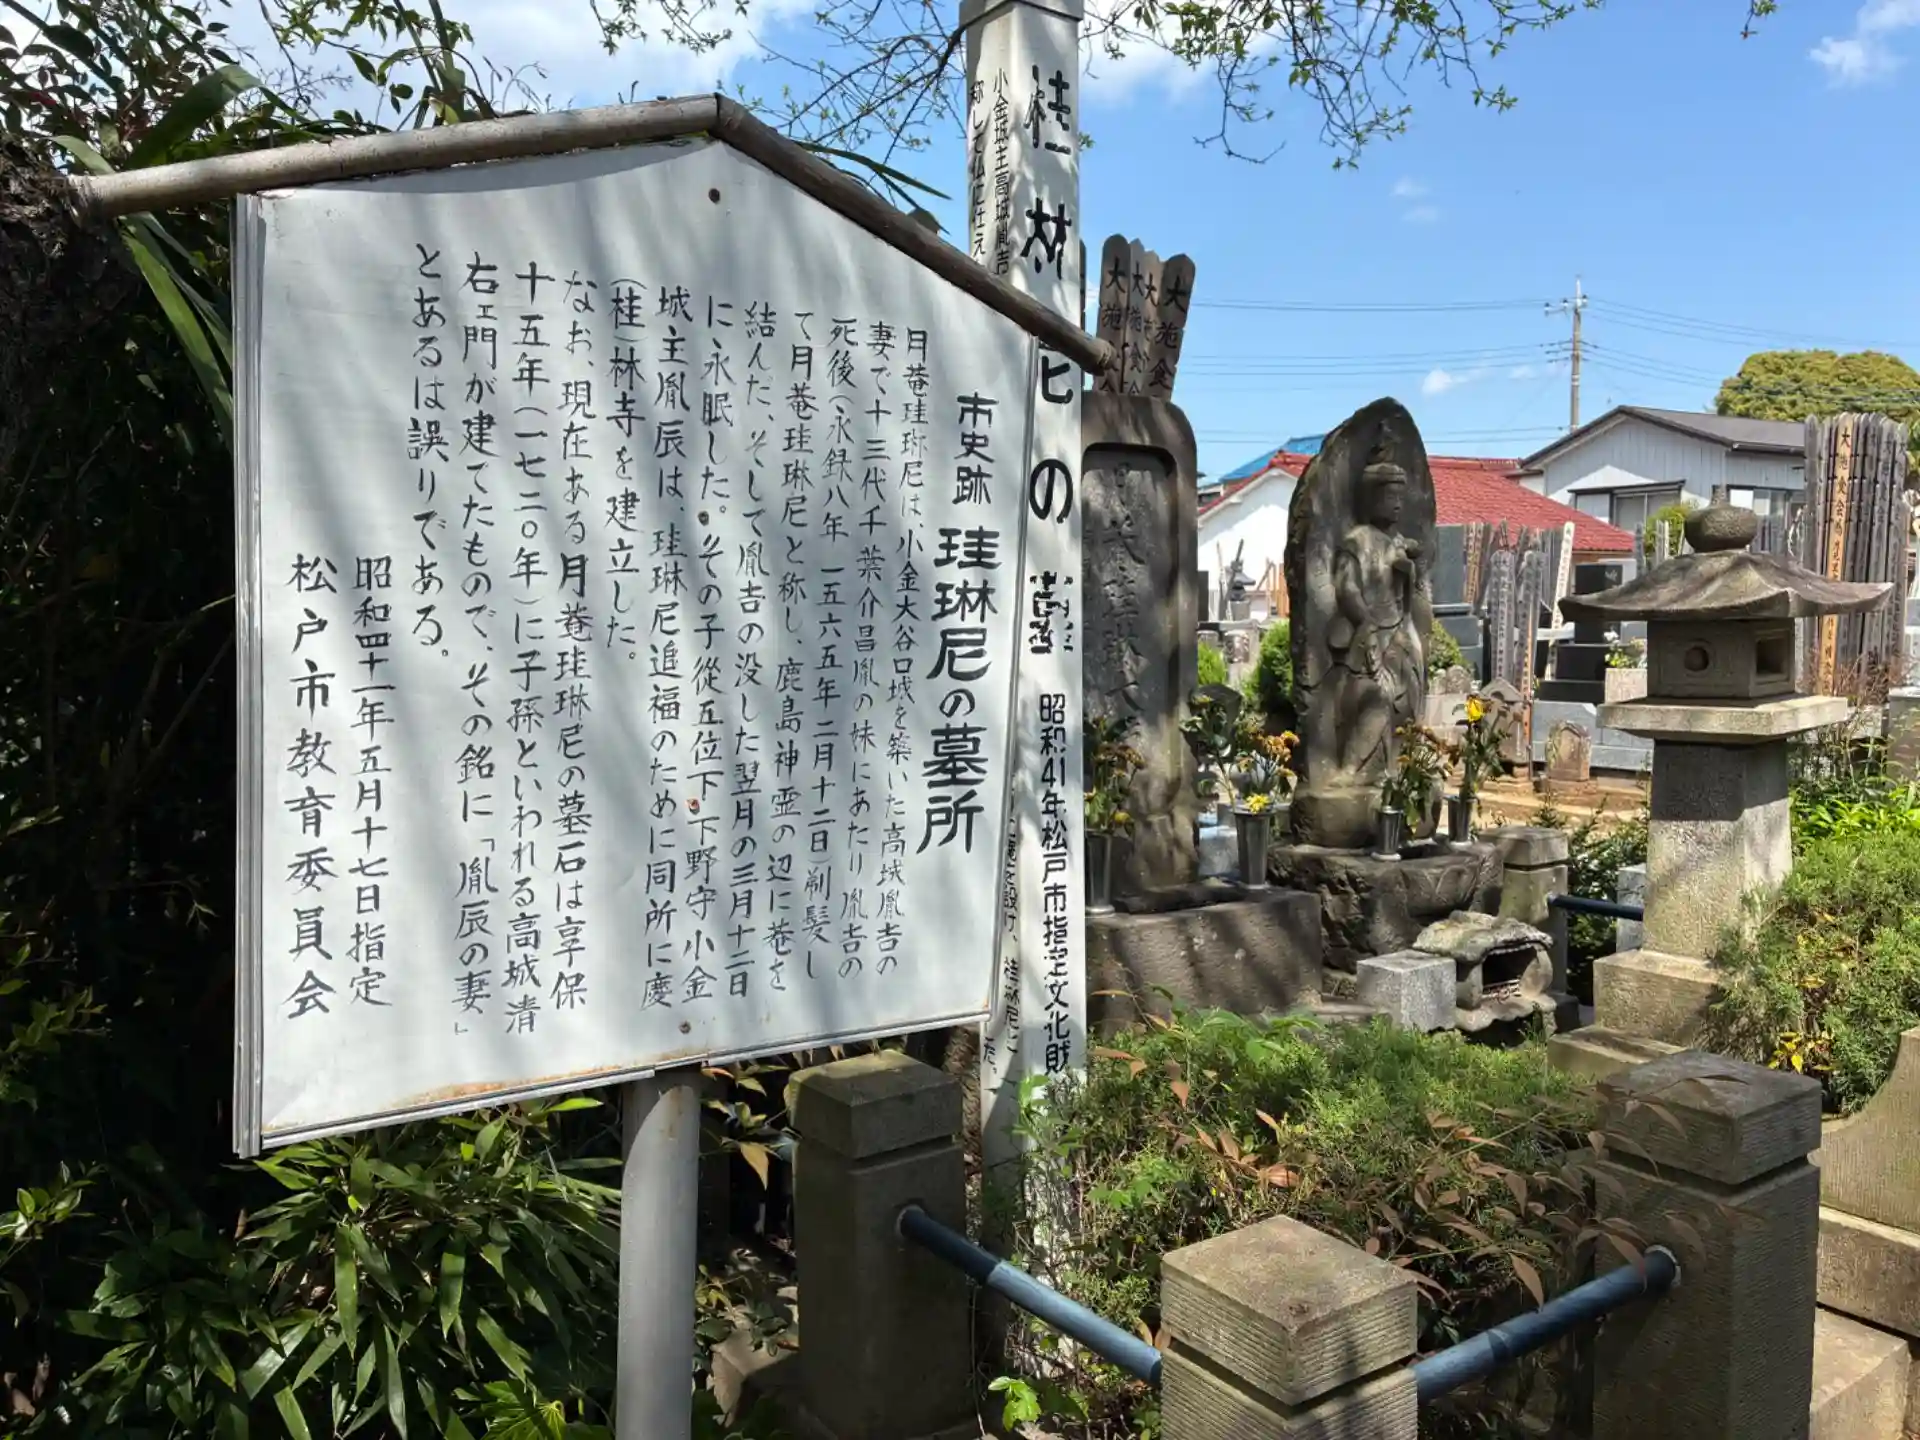 市史跡 珪琳尼の墓所
月菴珪琳尼は、小金大谷口城を築いた高城胤吉の
妻で十三代千葉介昌胤の妹にあたり胤吉の
死後(永録八年 一五六五年二月十二日)剃髪し
て月菴珪琳尼と称し、鹿島神霊の辺に菴を
結んだ、そして胤吉の没した翌月の三月十二日
に永眠した。その子從五位下下野守小金
城主胤辰は、珪琳尼追福のために同所に慶
(桂)林寺を建立した。
なお、現在ある月菴珪琳尼の墓石は享保
十五年(一七二〇年)に子孫といわれる高城清
右エ門が建てたもので、その銘に「胤辰の妻」
とあるは誤りである。
昭和四十一年五月十七日指定
松戸市教育委員会
桂林尼の墓 昭和41年松戸市指定文化財
小金城主高城胤吉
称して仏に仕え
を設け、桂林尼に
た。
大施
大施食会
大施食会
大施食会